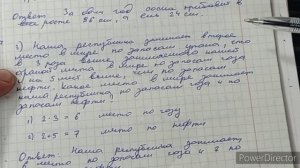 Ответ: За один год сосна прибавит в
росте 56 см, а ель 24 см.
3) Наша республика занимает второе
место в мире по запасам урана, это
в 3 раза выше занимаемого нашей
место в мире по запасам газа
и на 5 мест выше, чем по запасам
нефти. Какое место в мире занимает
наша республика по запасам газа и по
запасам нефти.
1) 2·3=6 место по газу
2) 2+5=7 место по нефти
Ответ: Наша республика занимает
6 место по запасам газа и 7 по
PowerDirector